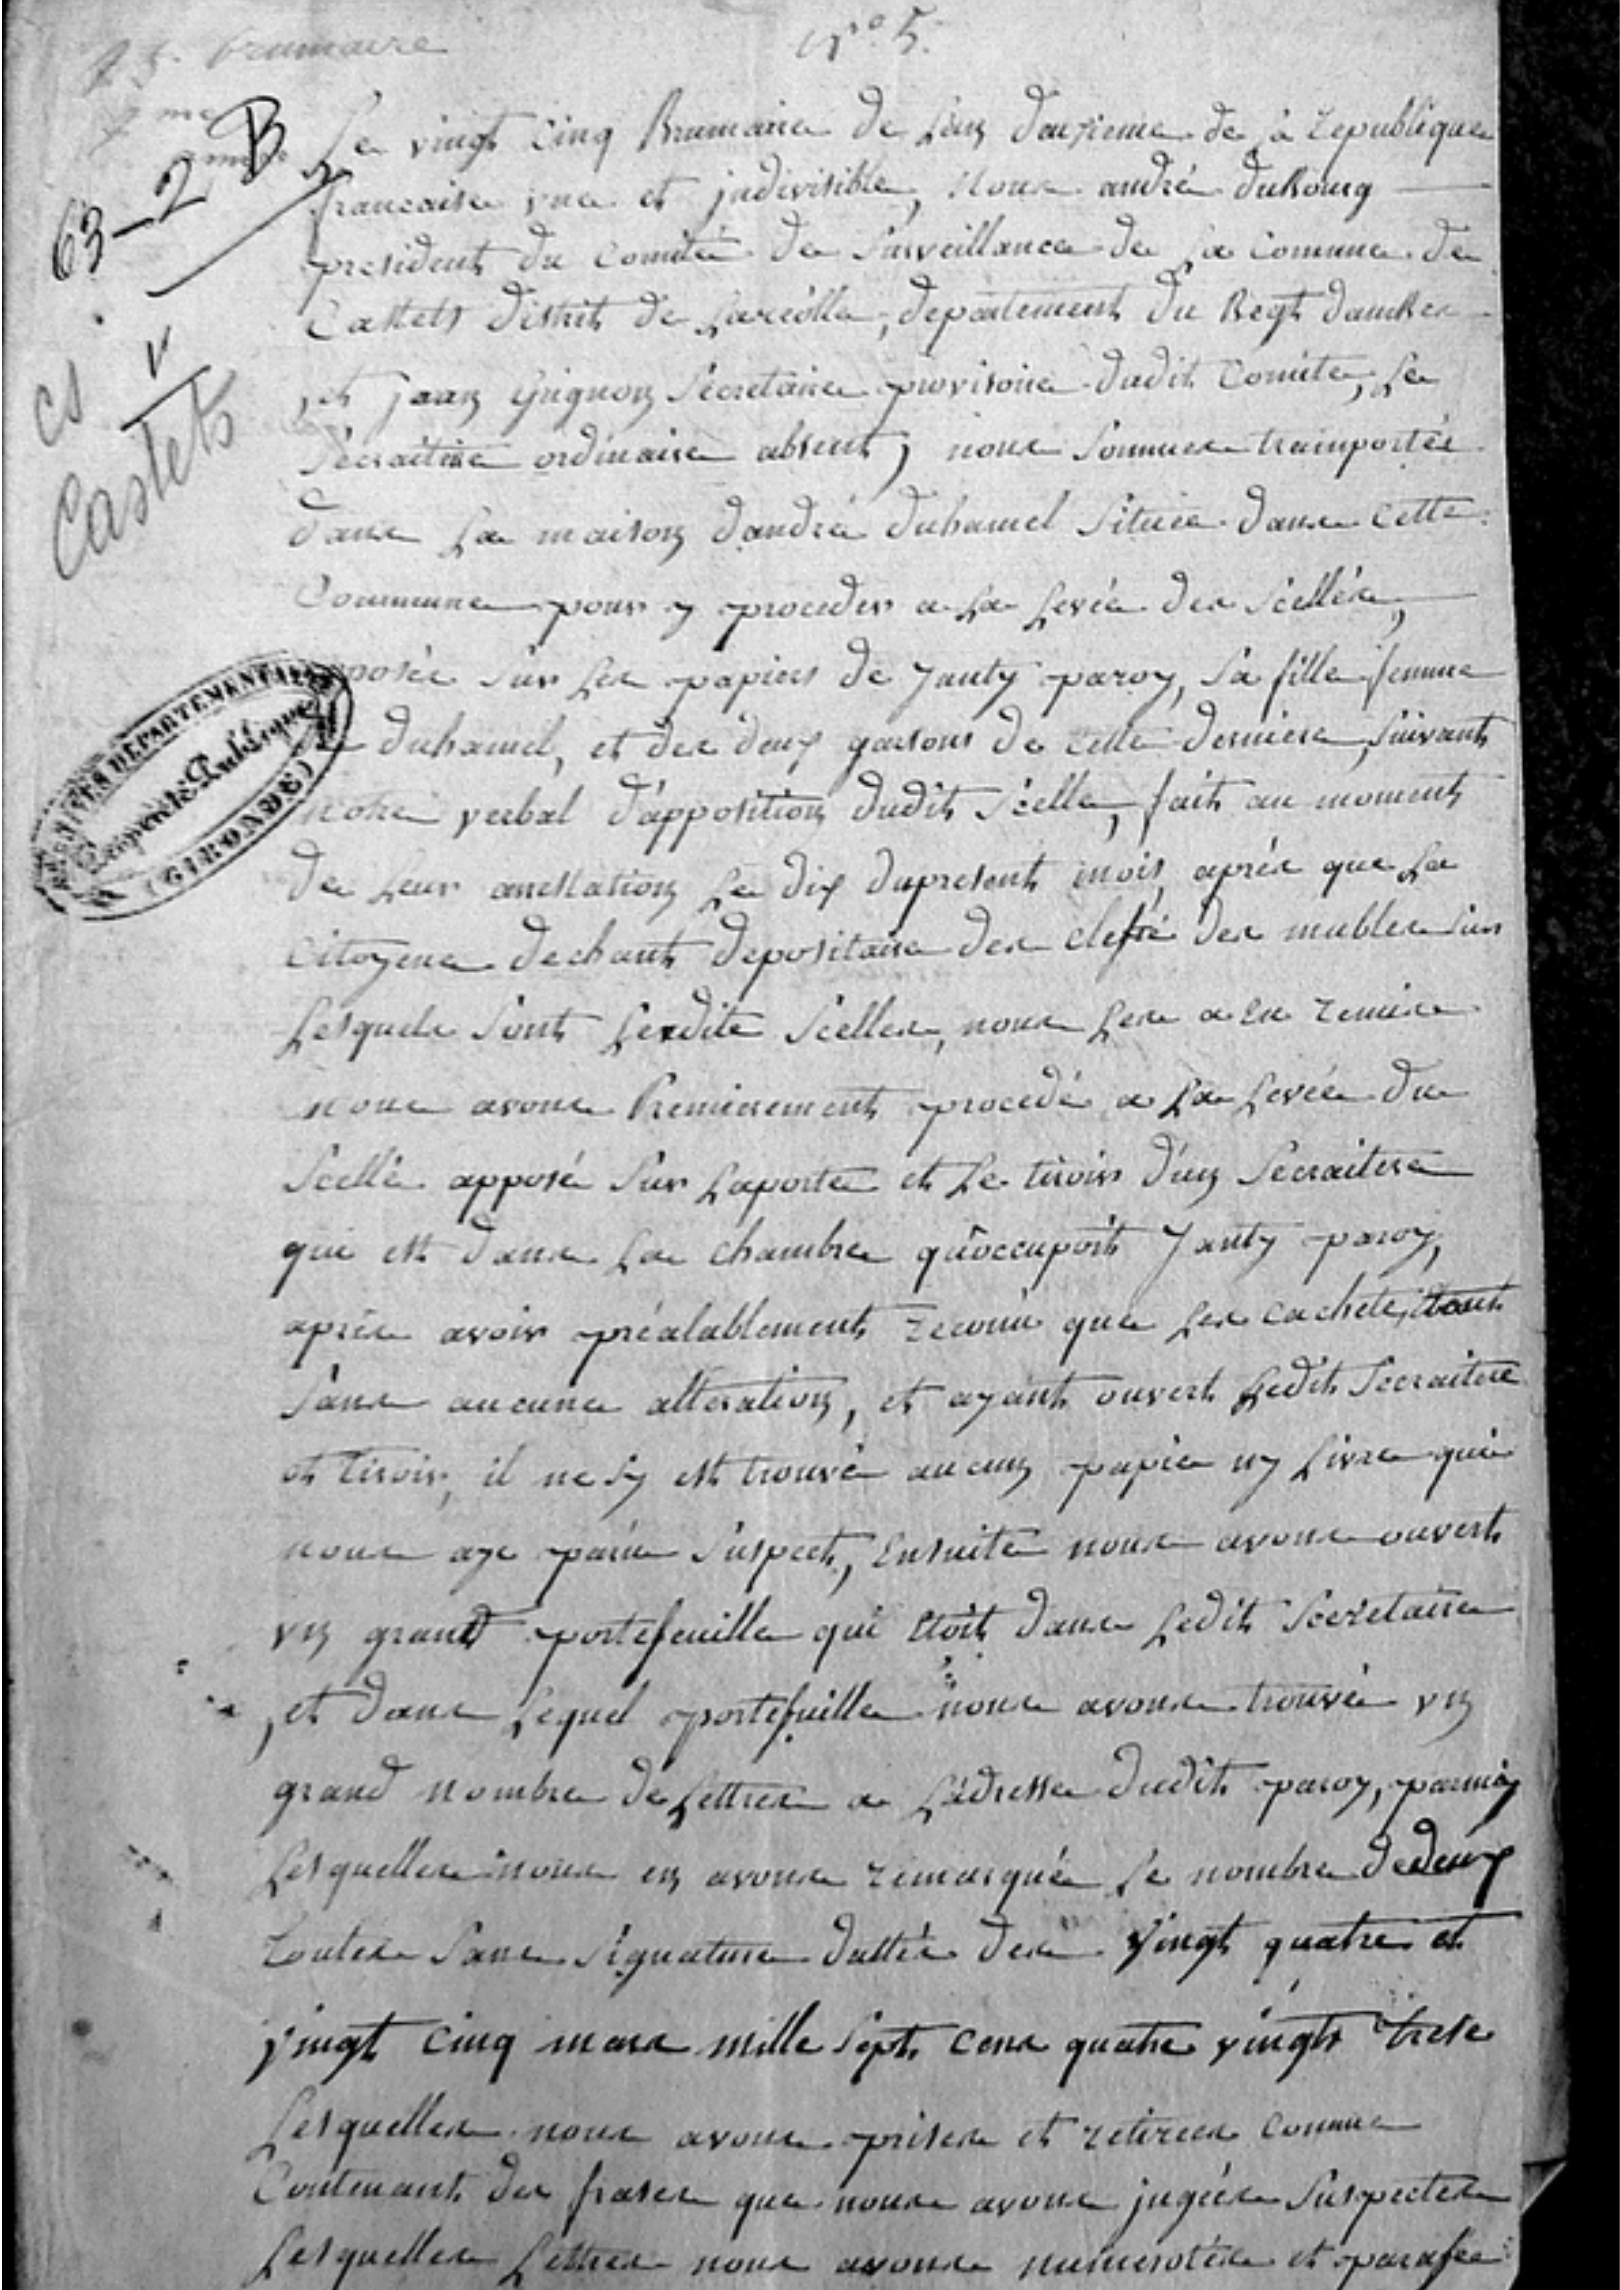 25 brumaire
N° 5.
2me
année
63-2 B
CS
V
Castets
ARCHIVES DEPARTEMENTALES
Propriété Publique
(GIRONDE)
Le vingt Cinq Brumaire de Lan deuxieme de la republique
francaise une et indivisible, Nous andré duBourg
president du Comité de Surveillance de La Commune de
Castets district de Lareolle, departement du Begt dambes
, et jean Grignon Secretaire provisoire dudit Comite, Le
Secraitaire ordinaire absent, nous Sommes transportés
dans La maison dandré duhamel Située dans Cette
Commune pour y proceder a La Levée des Scellés,
aposés Sur Les papiers de Janty paroy, Sa fille femme
de duhamel, et des deux garsons de cette derniere, Suivant
notre verbal d'apposition dudit Scelle, fait au moment
de Leur arrestation Le dix dupresent mois, après que La
Citoyene dechant depositaire des clefs des mubles Sur
Lesquels Sont Lesdits Scelles, nous Les a Eu remise
nous avons Premierement procedé a La Levée du
Scellé apposé Sur Laporte et Le tiroir d'un Secraitere
qui est dans La chambre qu'occupoit Janty paroy,
après avoir préalablement reconu que Les cachets, étoient
Sans aucune alteration, et ayant ouvert Ledit Secraitere
et tiroir, il ne Sy est trouvé aucun papie ny Livre qui
nous aye paru Suspect, Ensuite nous avons ouvert
un grand portefeuille qui Etoit dans Ledit Secretaire
, et dans Lequel portefuille nous avons trouvé un
grand nombre de Lettres a L'adresse dudit paroy, parmy
Lesquelles nous en avons remarqué Le nombre dedeux
toutes Sans Signature dattés des Vingt quatre et
vingt cinq mars mille Sept Cens quatre vingts trese
Lesquelles nous avons prises et retirees Comme
Contenant des frases que nous avons jugées Suspectes
Lesquelles Lettres nous avons numerotées et parafée